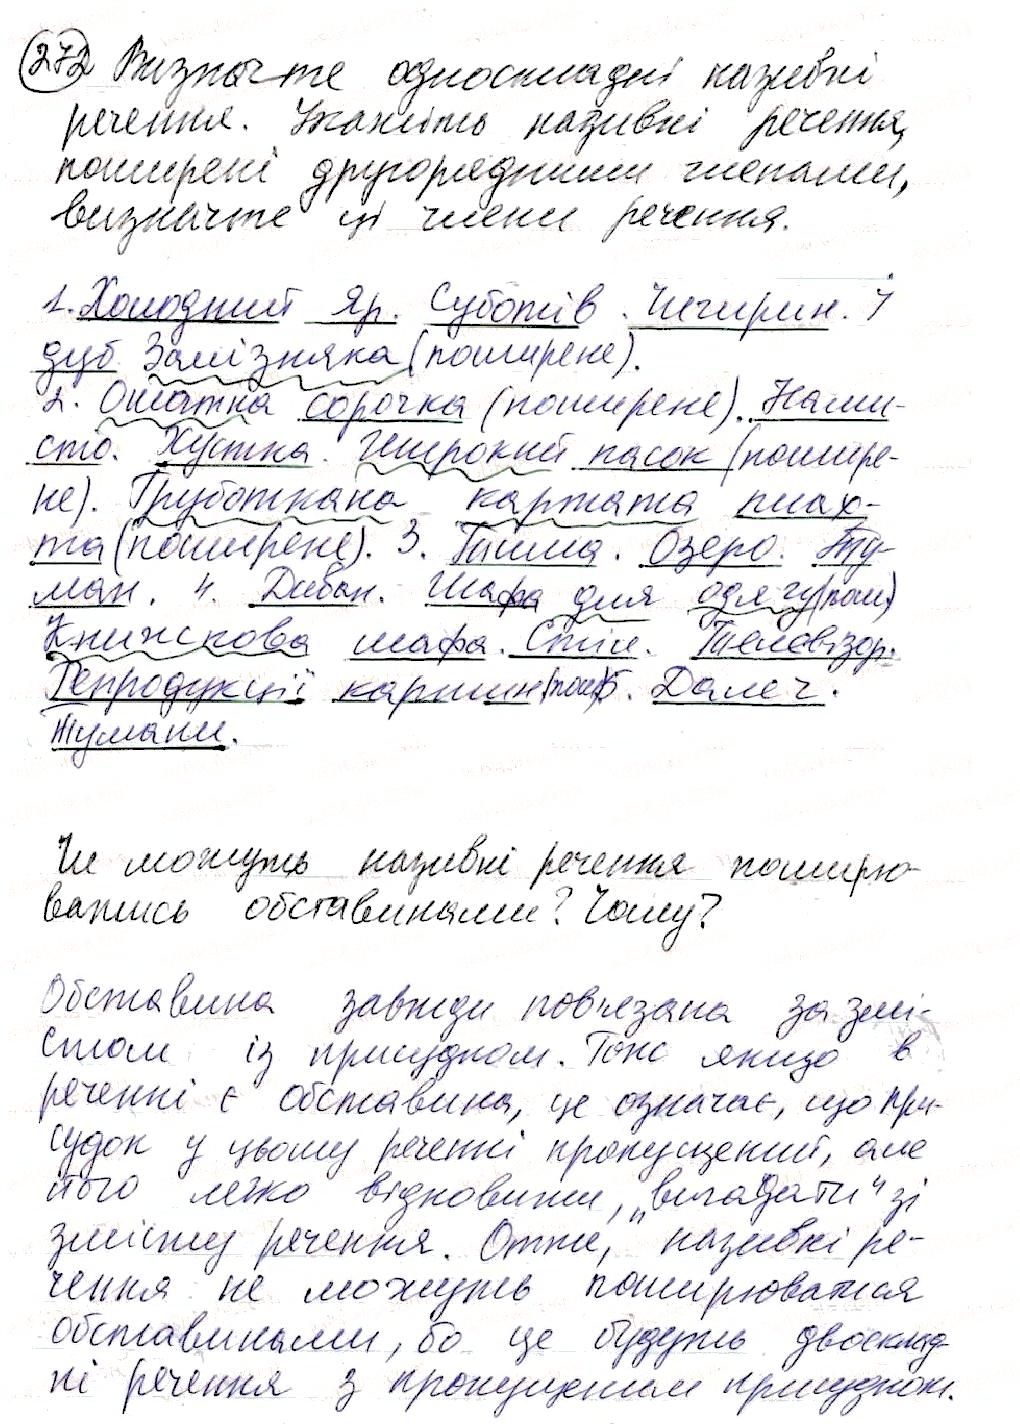 272 Визначте односкладні називні
речення. Укажіть називні речення,
поширені другорядними членами,
визначте ці члени речення.
1. Холодний Яр. Суботів. Чигирин. І
дуб Залізняка (поширене).
2. Ошатна сорочка (поширене). Нами-
сто. Хустка. Широкий пасок (пошире-
не). Груботкана картата плах-
та (поширене). 3. Тиша. Озеро. Ту-
ман. 4. Диван. Шафа для одягу (пош.)
Книжкова шафа. Стіл. Телевізор.
Репродукції картин (пош) 5. Далеч.
Тумани.
Чи можуть називні речення поширю-
ватись обставинами? Чому?
Обставина завжди пов'язана за змі-
стом із присудком. Тож якщо в
реченні є обставина, це означає, що при-
судок у цьому реченні пропущений, але
його легко відновити, „вигадати" зі
змісту речення. Отже, називні ре-
чення не можуть поширюватися
обставинами, бо це будуть двосклад-
ні речення з пропущеним присудком.